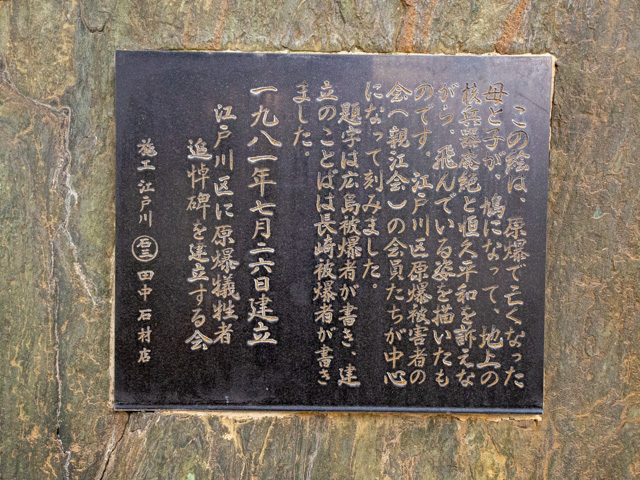 この絵は、原爆で亡くなった
母と子が、鳩になって、地上の
核兵器廃絶と恒久平和を訴えな
がら、飛んでいる姿を描いたも
のです。江戸川区原爆被害者の
会(親江会)の会員たちが中心
になって刻みました。
題字は広島被爆者が書き、建
立のことばは長崎被爆者が書き
ました。
一九八一年七月二六日建立
江戸川区に原爆犠牲者
追悼碑を建立する会
施工 江戸川 石三 田中石材店